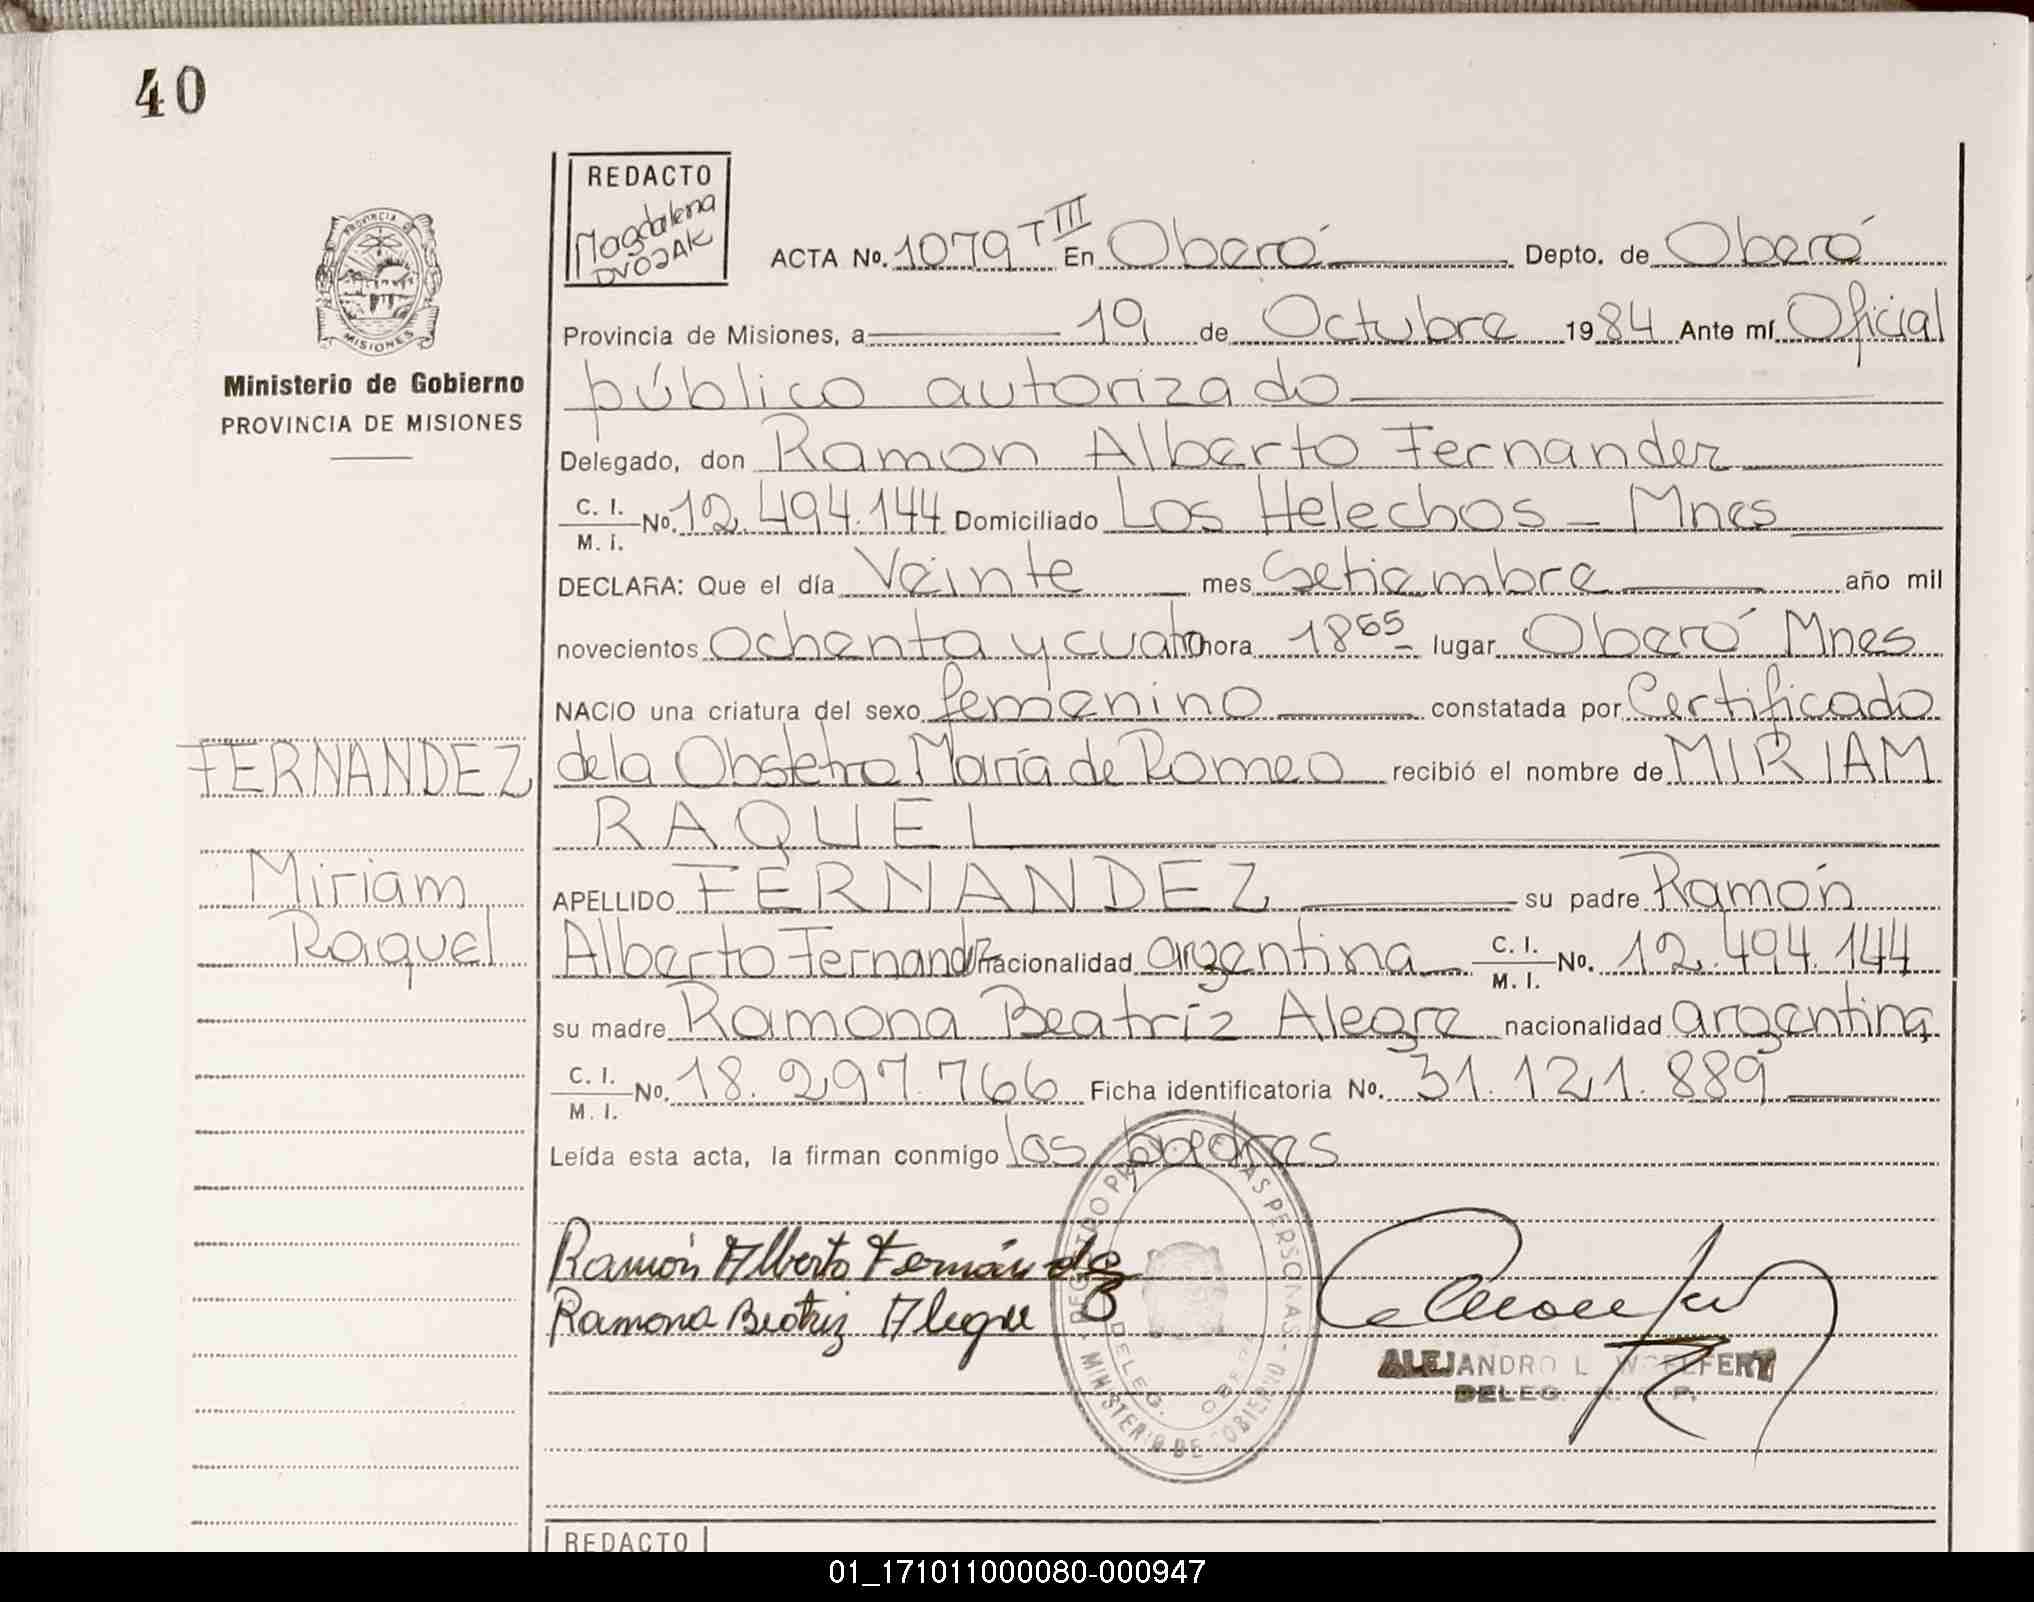 40
REDACTO
Magdalena
DVOJAK
PROVINCIA DE
MISIONES
Ministerio de Gobierno
PROVINCIA DE MISIONES
ACTA No. 1079 T III En Oberá Depto. de Oberá
Provincia de Misiones, a 19 de Octubre 1984 Ante mí Oficial
público autorizado
Delegado, don Ramon Alberto Fernandez
C. I. / M. I. No. 12.494.144 Domiciliado Los Helechos - Mnes
DECLARA: Que el día Veinte mes Setiembre año mil
novecientos Ochenta y cuatro hora 18 55 lugar Oberá Mnes
NACIO una criatura del sexo femenino constatada por Certificado
de la Obstetra María de Romeo recibió el nombre de MIRIAM
RAQUEL
FERNANDEZ
Miriam
Raquel
APELLIDO FERNANDEZ su padre Ramón
Alberto Fernandez nacionalidad argentina C. I. / M. I. No. 12.494.144
su madre Ramona Beatríz Alegre nacionalidad argentina
C. I. / M. I. No. 18.297.766 Ficha identificatoria No. 31.121.889
Leída esta acta, la firman conmigo los padres
Ramón Alberto Fernández
Ramona Beatriz Alegre
REGISTRO PROV. DE LAS PERSONAS
MINISTERIO DE GOBIERNO
DELEG. OBERA
ALEJANDRO L WOELFERT
DELEG. R. P. P.
REDACTO
01_171011000080-000947